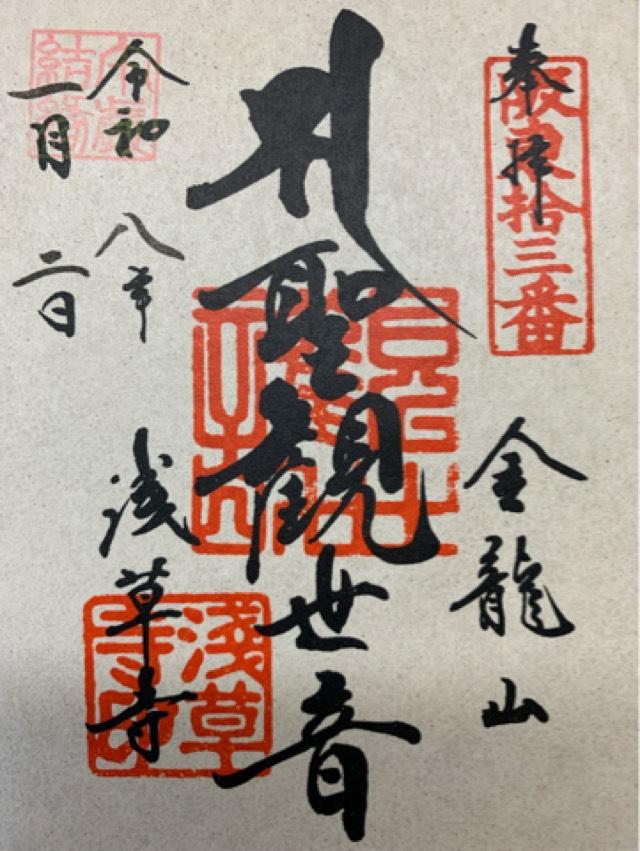 奉拝
阪東拾三番
金龍山
聖観世音
令和八年
一月二日
浅草寺
淺草寺印